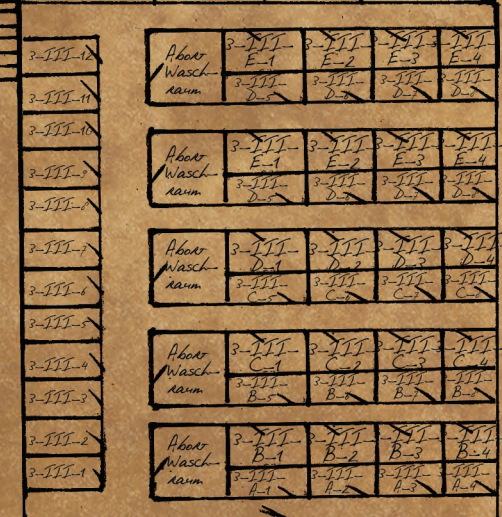 3-III-12
3-III-11
3-III-10
3-III-9
3-III-8
3-III-7
3-III-6
3-III-5
3-III-4
3-III-3
3-III-2
3-III-1
Abort
Wasch-
raum
3-III-
E-1
3-III-
E-2
3-III-
E-3
3-III
E-4
3-III-
D-5
3-III-
D-6
3-III-
D-7
3-III-
D-8
Abort
Wasch-
raum
3-III-
E-1
3-III-
E-2
3-III-
E-3
3-III-
E-4
3-III-
D-5
3-III-
D-6
3-III-
D-7
3-III-
D-8
Abort
Wasch-
raum
3-III-
D-1
3-III-
D-2
3-III-
D-3
3-III-
D-4
3-III-
C-5
3-III-
C-6
3-III-
C-7
3-III-
C-8
Abort
Wasch-
raum
3-III-
C-1
3-III-
C-2
3-III-
C-3
3-III-
C-4
3-III-
B-5
3-III-
B-6
3-III-
B-7
3-III-
B-8
Abort
Wasch-
raum
3-III-
B-1
3-III-
B-2
3-III-
B-3
3-III-
B-4
3-III-
A-1
3-III-
A-2
3-III-
A-3
3-III-
A-4